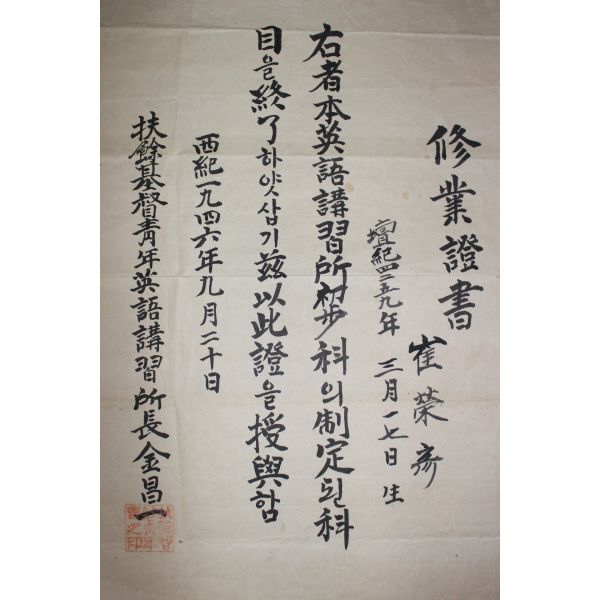 修業證書
崔榮彦
壇紀四二五九年 三月一七日生
右者本英語講習所初步科의制定된科
目을終了하얏삽기玆以此證을授與함
西紀一九四六年九月二十日
扶餘基督靑年英語講習所長金昌一